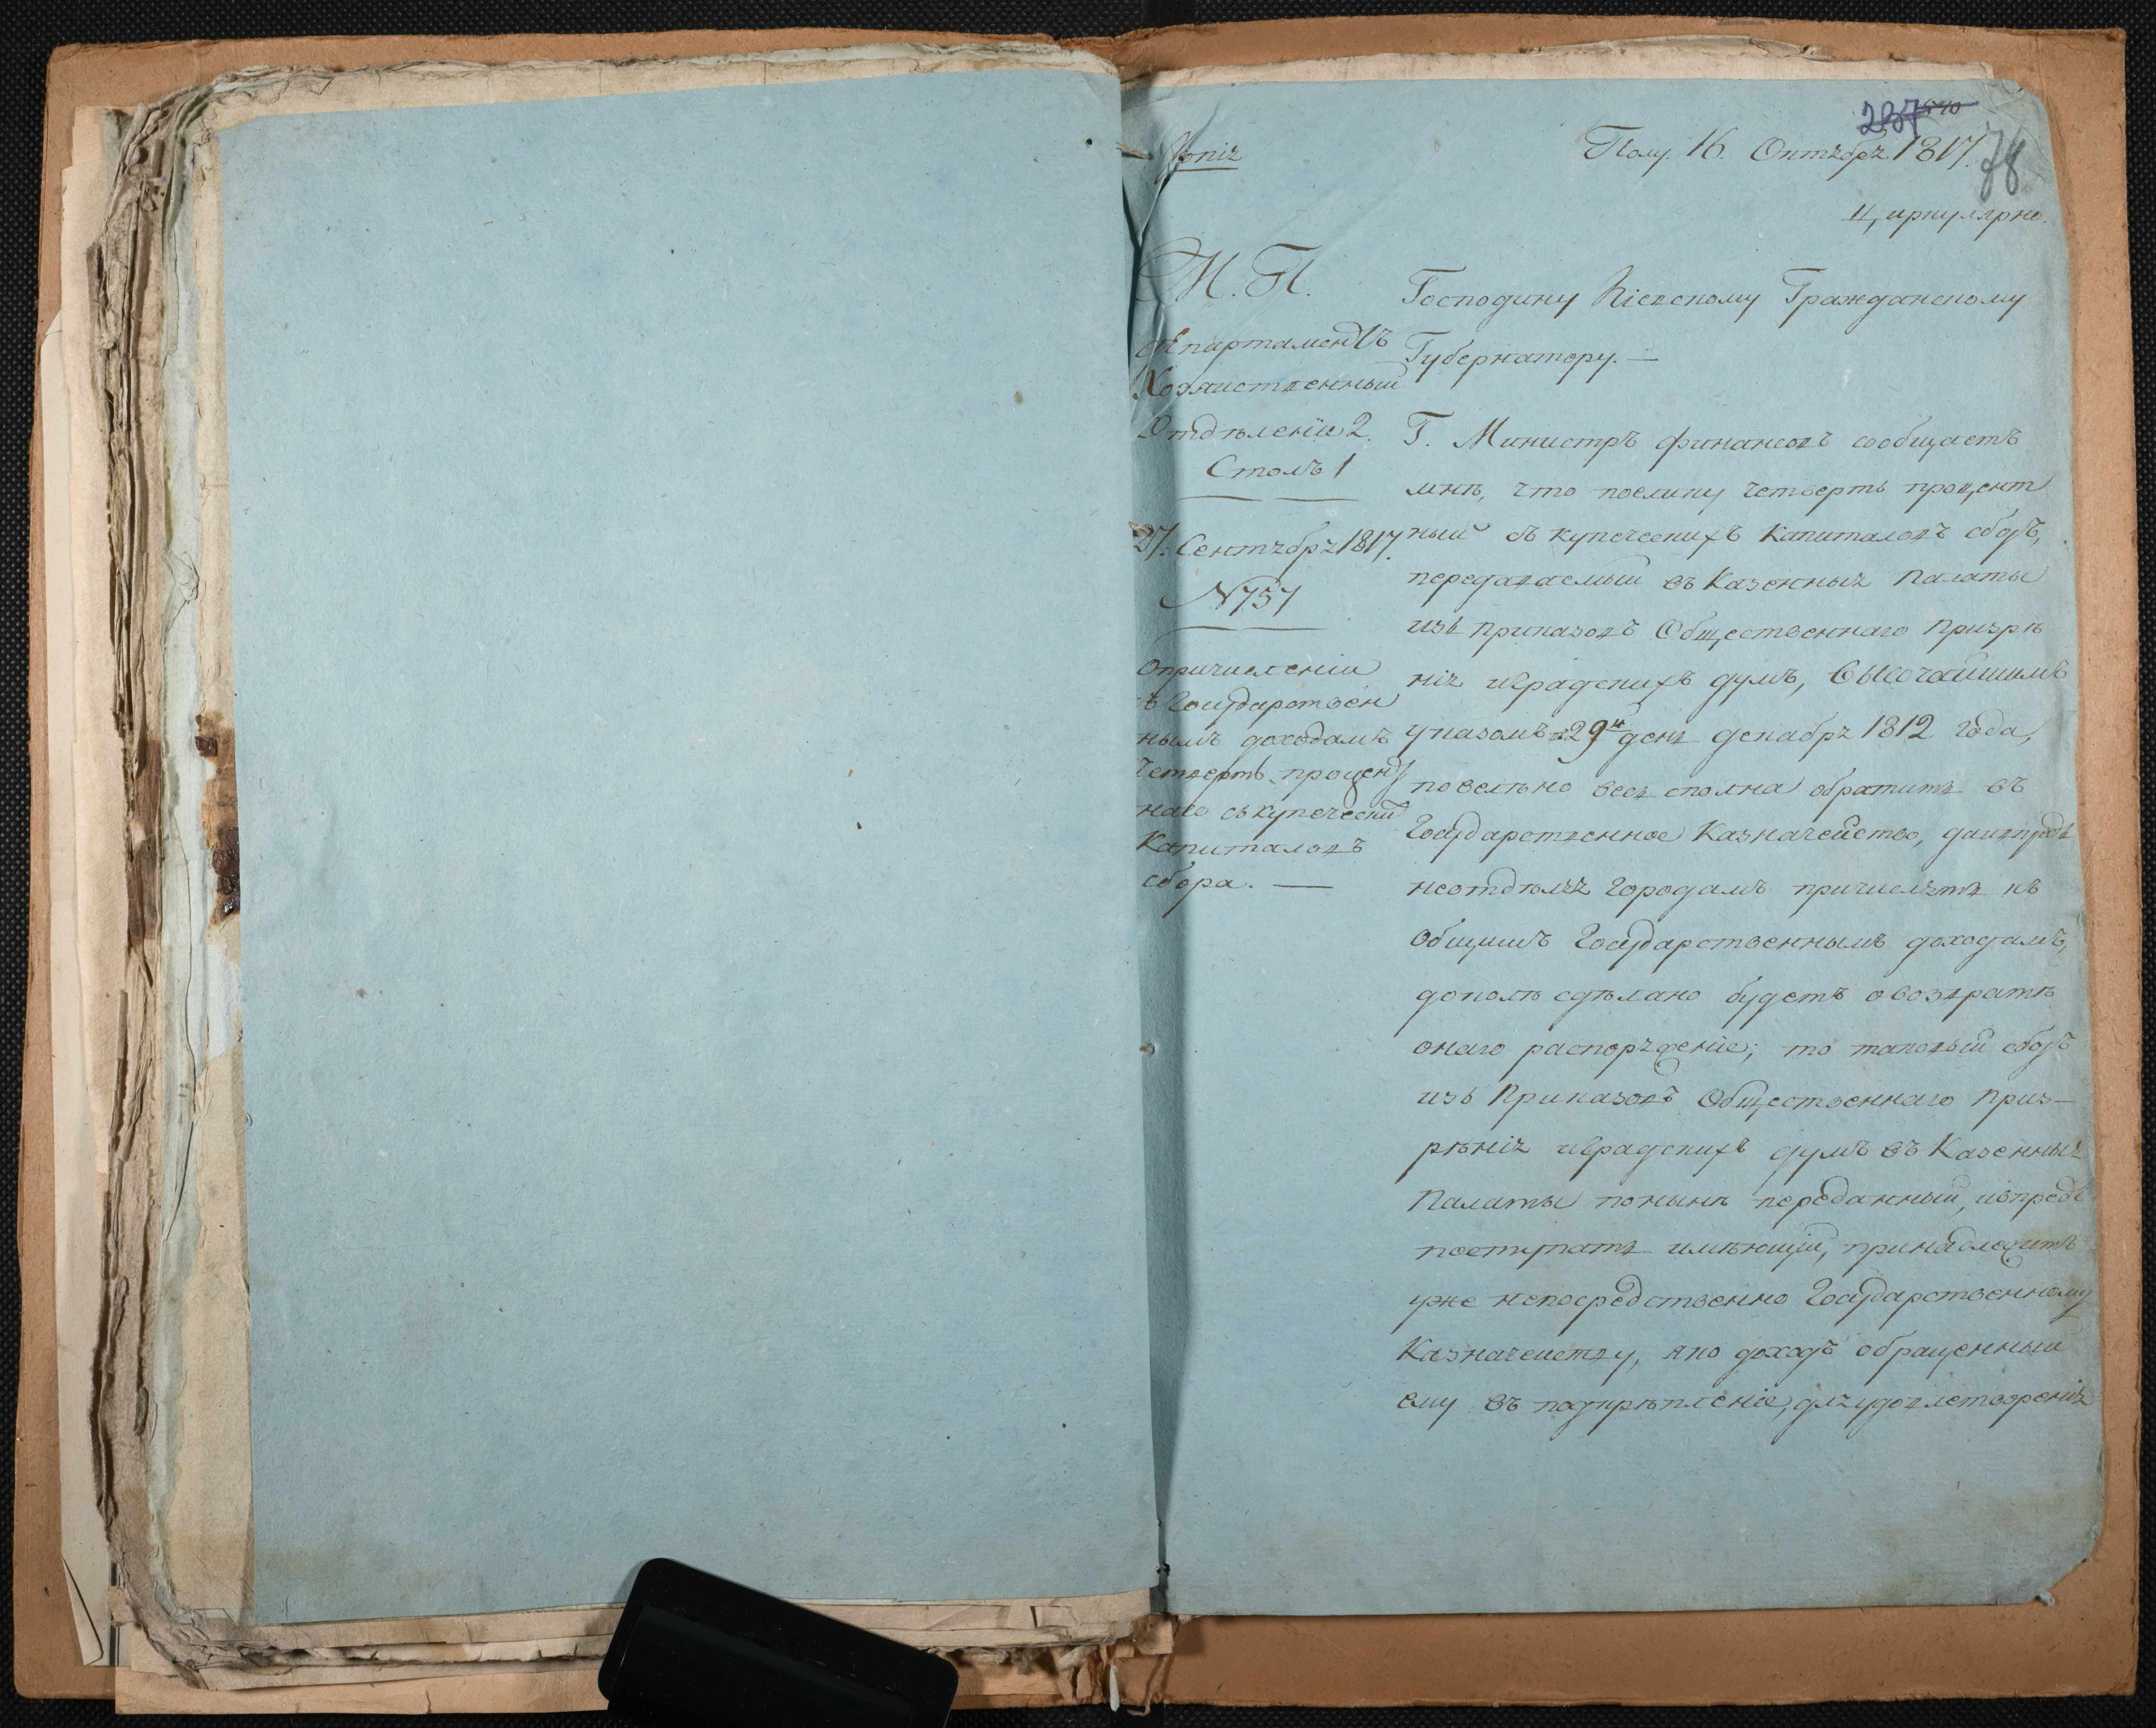 Копія
237
Полу. 16. Октября 1817.
78
Циркулярно.
М. П.
Департаментъ
Хозяиственный
Отдѣленіе 2.
Столъ 1
27. Сентября 1817.
N 757
О причисленіи
къ Государствен
нымъ доходамъ
четверть процент
наго съ купечески
Капиталовъ
сбора. —
Господину Кіевскому Гражданскому
Губернатору. —
Г. Министръ финансовъ сообщаетъ
мнѣ, что поелику четверть процент
ный съ купеческихъ Капиталовъ сборъ,
передаваемый въ Казенныя Палаты
изъ приказовъ Общественнаго призрѣ
нія и градскихъ думъ, Высочайшимъ
указомъ въ 29й день декабря 1812 года,
повелѣно весь сполна обратить въ
Государственное Казначейство, да и впредь
не отдѣляя городамъ причислять къ
общимъ Государственнымъ доходамъ,
доколѣ сдѣлано будетъ о возвратѣ
онаго распоряженіе; то таковый сборъ
изъ Приказовъ Общественнаго приз—
рѣнія и градскихъ думъ въ Казенныя
Палаты понынѣ переданный, и впредь
поступать имѣющій, принадлежитъ
уже непосредственно Государственному
Казначейству, яко доходъ обращенный
ему въ подкрѣпленіе, для удовлетворенія